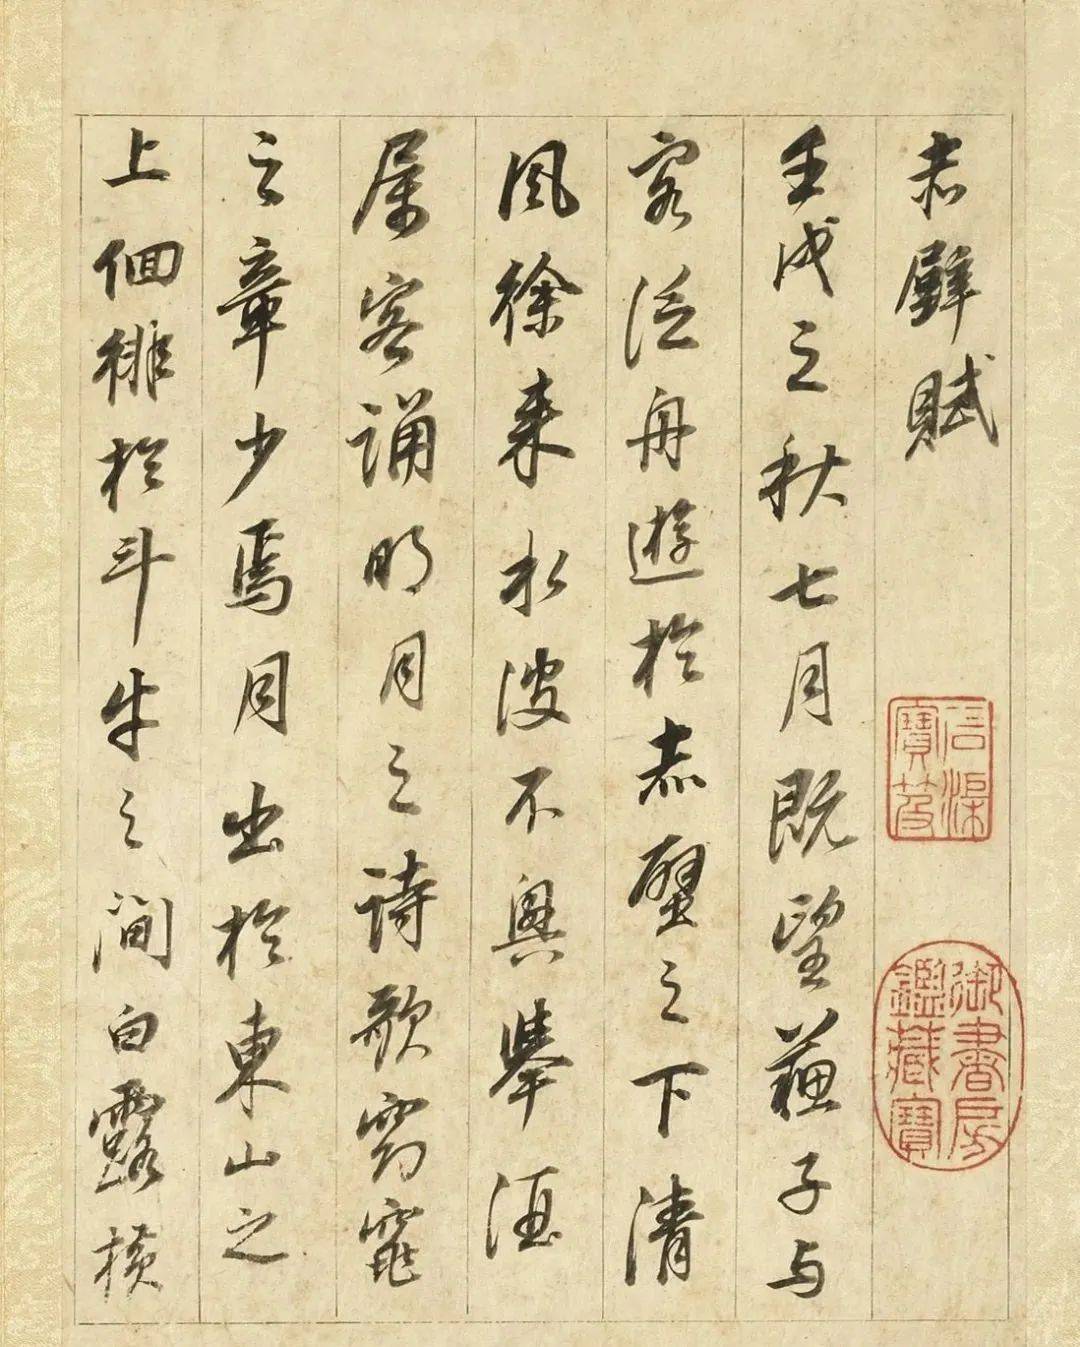 赤壁賦
石渠寶笈
御書房鑑藏寶
壬戌之秋七月既望蘇子与
客泛舟遊於赤壁之下清
風徐来水波不興舉酒
属客誦明月之詩歌窈窕
之章少焉月出於東山之
上佪徘於斗牛之間白露横